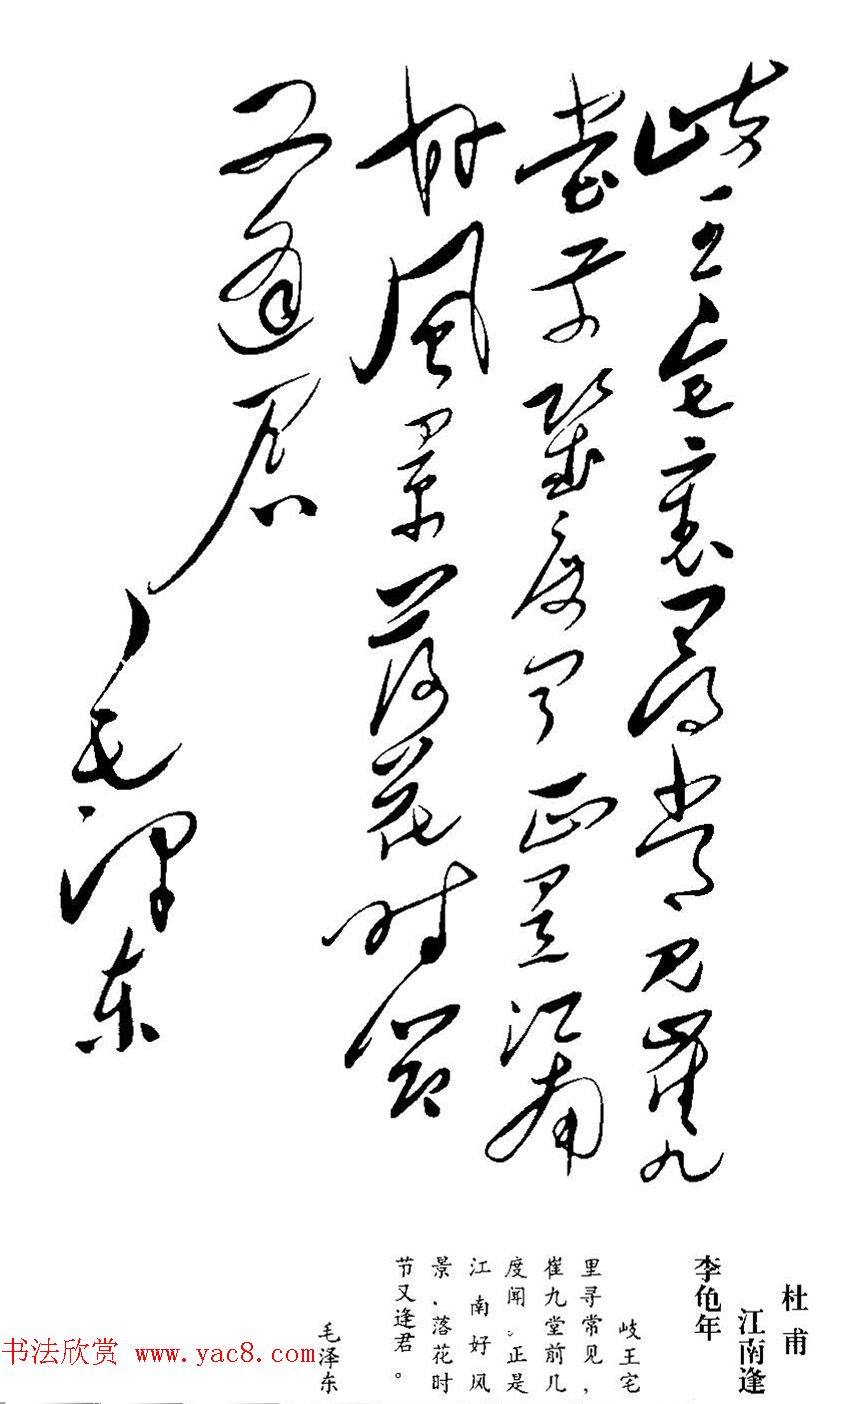 岐王宅裏尋常見崔九
堂前幾度聞正是江南
好風景落花時節
又逢君
毛泽东
杜甫
江南逢
李龟年
岐王宅
里寻常见，
崔九堂前几
度闻。正是
江南好风
景，落花时
节又逢君。
毛泽东
书法欣赏 www.yac8.com